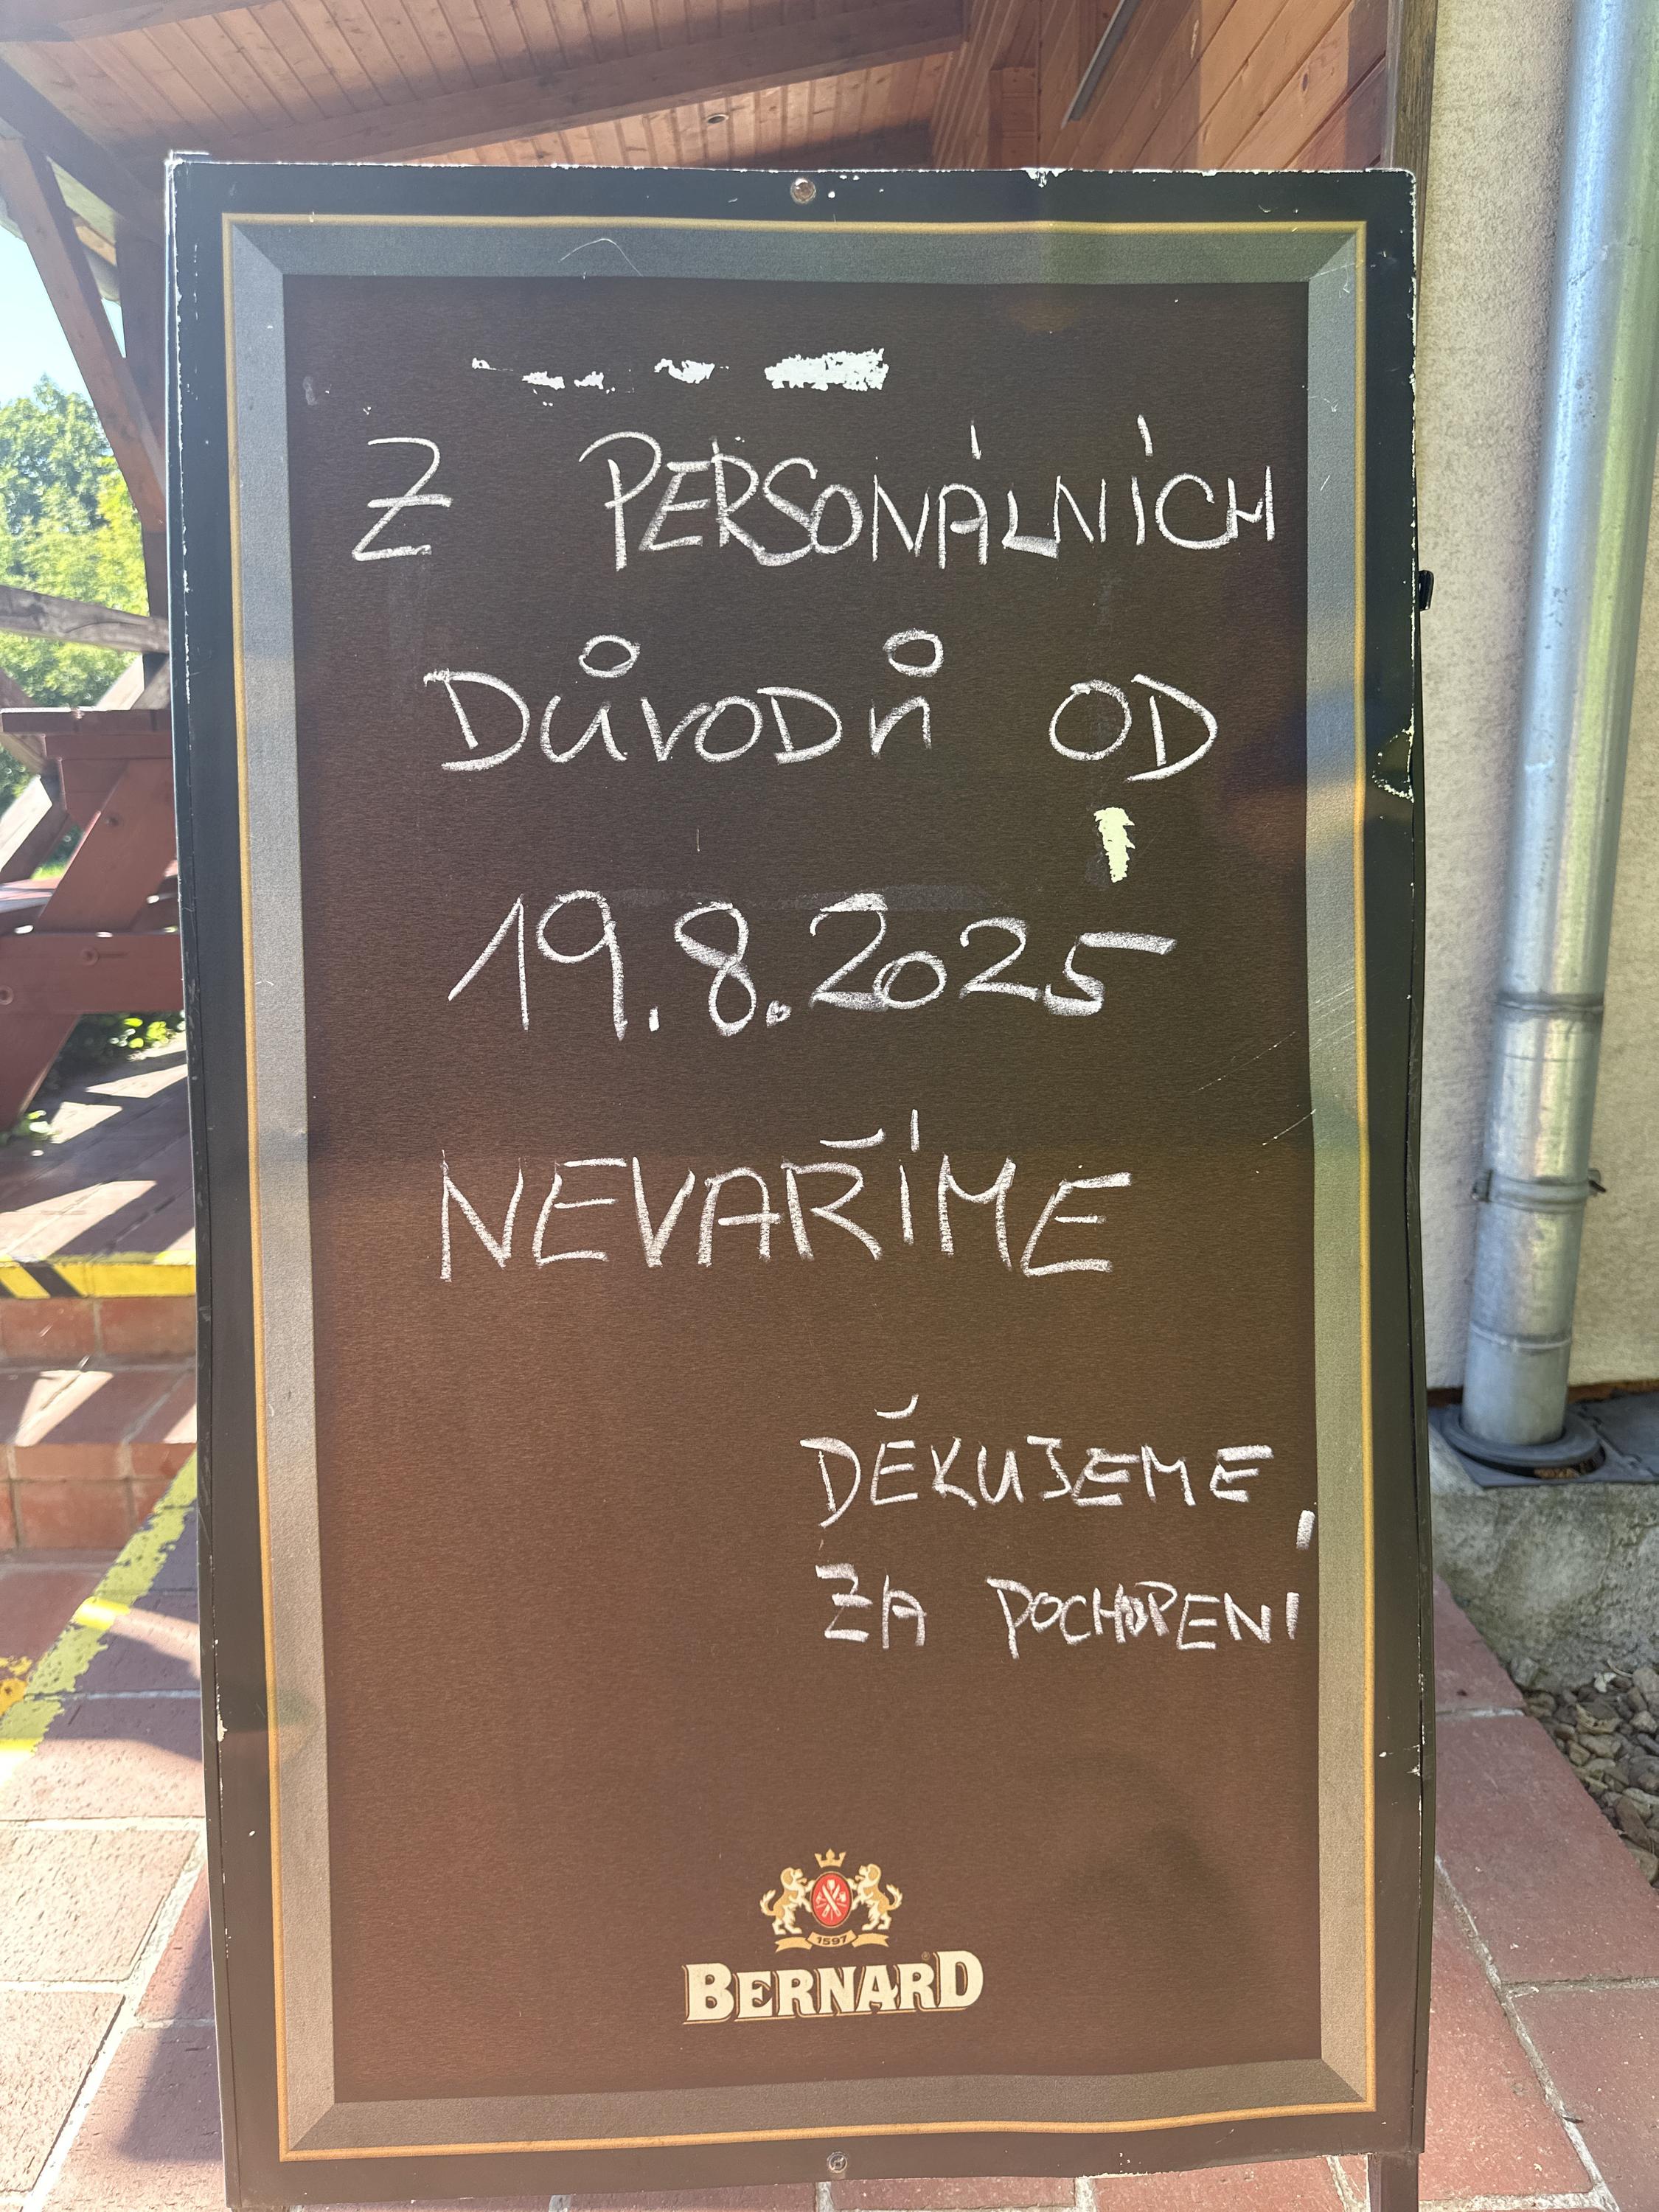 Z PERSONÁLNÍCH
DŮVODŮ OD
19.8.2025
NEVAŘÍME
DĚKUJEME
ZA POCHOPENÍ
1597
BERNARD